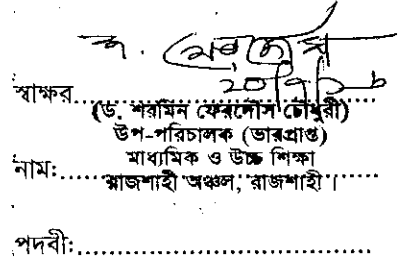 স্বাক্ষর....................
(ড. শরমিন ফেরদৌস চৌধুরী)
উপ-পরিচালক (ভারপ্রাপ্ত)
মাধ্যমিক ও উচ্চ শিক্ষা
নাম:....................
রাজশাহী অঞ্চল, রাজশাহী।
পদবী:........................................